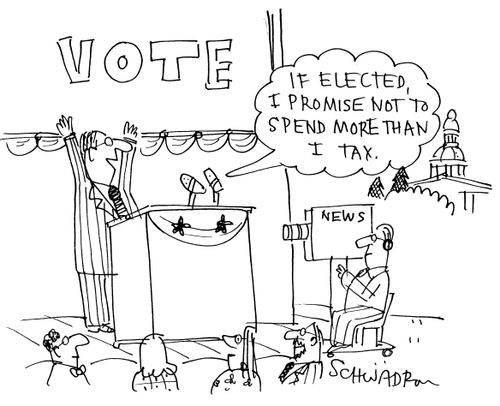 VOTE
IF ELECTED,
I PROMISE NOT TO
SPEND MORE THAN
I TAX.
NEWS
SCHWADRON